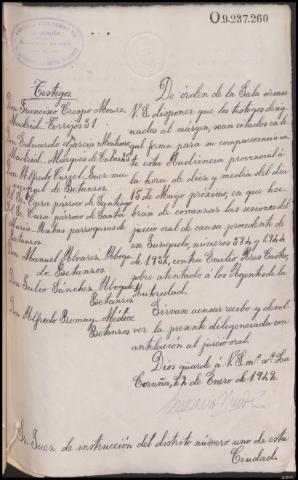 O.9.287.260
Testigos
Don Francisco Crespo Moure
Madrid. Torrijos 31
Don Eduardo García
Madrid. Marqués de
Don Alfredo Juez mu-
nicipal de Betanzos
Sr Cura párroco de Santiago
Sr Cura párroco de Santa
María. Ambas parroquias de
Betanzos
Don Manuel Alvarez, Aboga-
do. Betanzos
Don Julio Sánchez, Abogado
Betanzos
Don Alfredo Romay Médico
Betanzos
De órden de la Sala sírvase
V.S. disponer que los testigos desig-
nados al márgen, sean citados en le-
gal forma para su comparecencia an-
te esta Audiencia provincial á
la hora de diez y media del día
15 de Mayo próximo, en que ha-
bran de comenzar las sesiones del
juicio oral de causa procedente de
ese Juzgado, números 534 y
de 1934, contra Emilio Ares
sobre atentado á los Agentes de la
Autoridad.
Sírvase acusar recibo y devol-
ver la presente diligenciada con
antelación al juicio oral.
Dios guarde á V.S. m.s a.s La
Coruña, de Enero de 1942.
Sr Juez de instrucción del distrito número uno de esta
Ciudad.